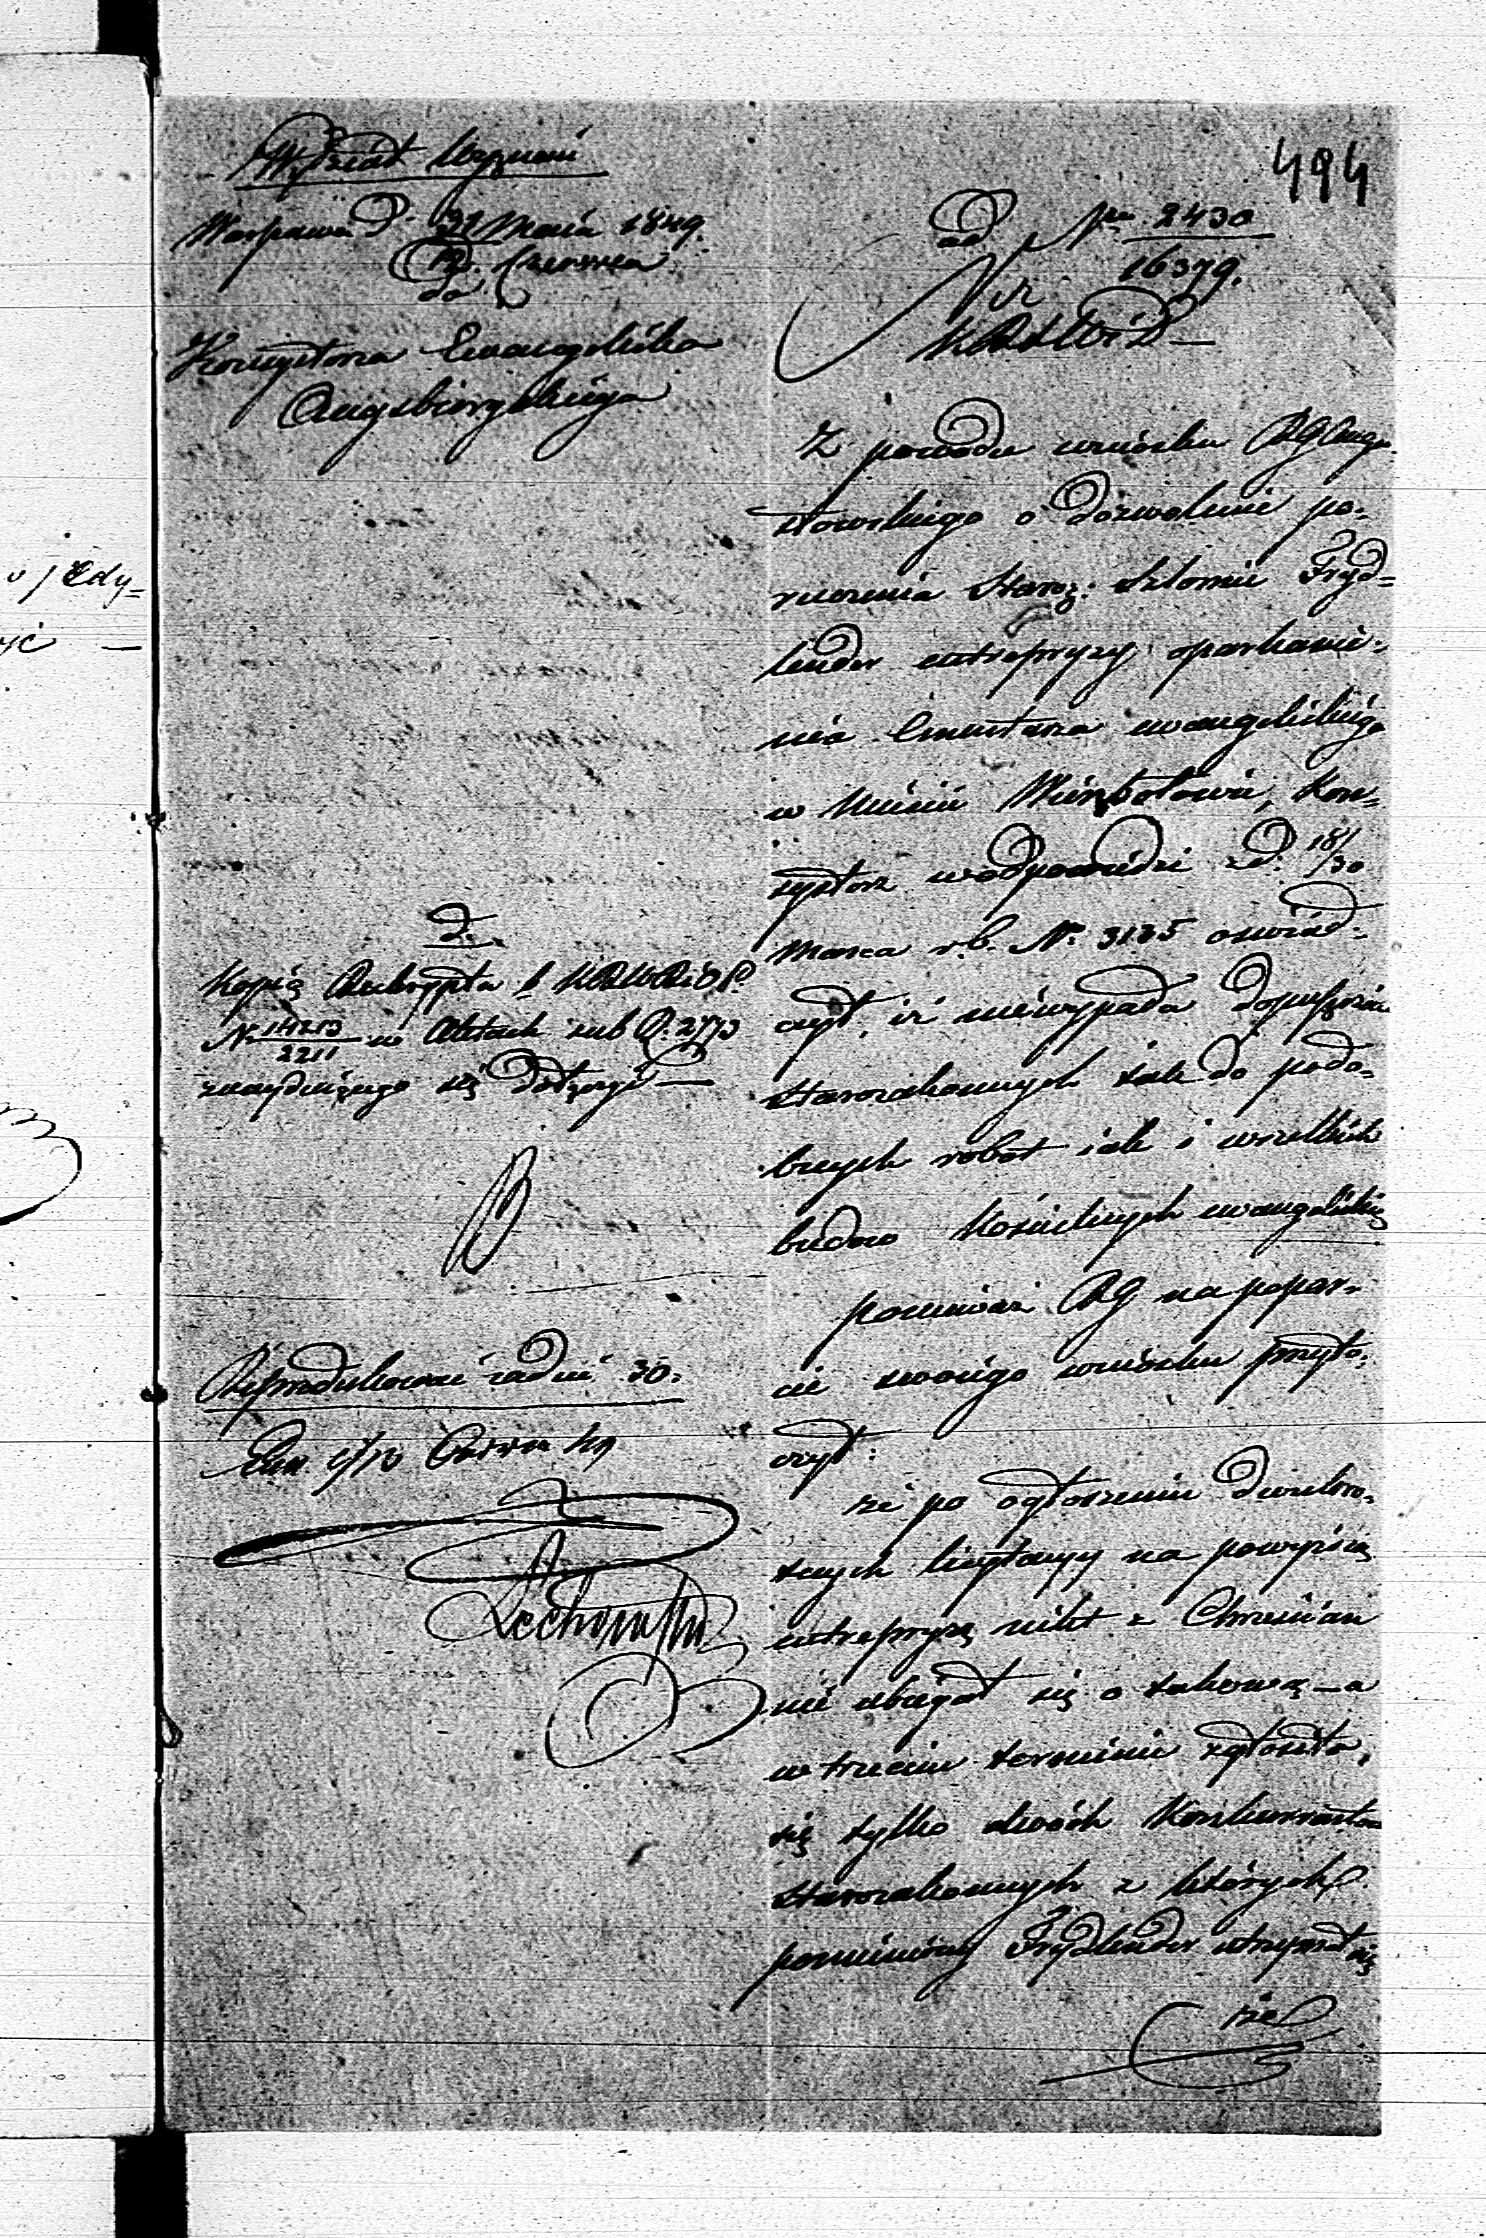 494
Wydział Wyznań
Warszawa d. 31 Maia 1849.
12. Czerwca
do
Konsystorza Ewangelicko
Augsburgskiego
ad Nrm 2430
16379.
KRSWiD
Z powodu wniosku RG Augu-
stowskiego o dozwolenie po-
ruczenia Staroz: Szlomie Fryd-
lender entrepryzy oparkanie-
nia Cmentarza ewangelickiego
w Mieście Wierzbołowie, Kon-
systorz w odpowiedzi z d. 18/30
Marca r. b. Nr. 3135 oświad-
czył, iż niewypada dopuszczać
starozakonnych tak do podo-
bnych robot iak i wszelkich
budow kościelnych ewangelickich
ponieważ RG na popar-
cie swoiego wniosku przyto-
czył:
że po ogłoszeniu dwukro-
tnych licytacyi na powyższą
entrepryzę nikt z Chrześcian
nie ubiegał się o takową – a
w trzecim terminie zgłosiło
się tylko dwóch Konkurrentów
starozakonnych z których
pomieniony Frydlender utrzymał się
że
2.
Kopią Reskryptu b. KRSWRiOP.
N. 14213/2211 w Aktach sub P. 2773
znayduiącego się dołączyć
Reprodukować za dni 30.
Czerwca 49
v jedy-
yć —